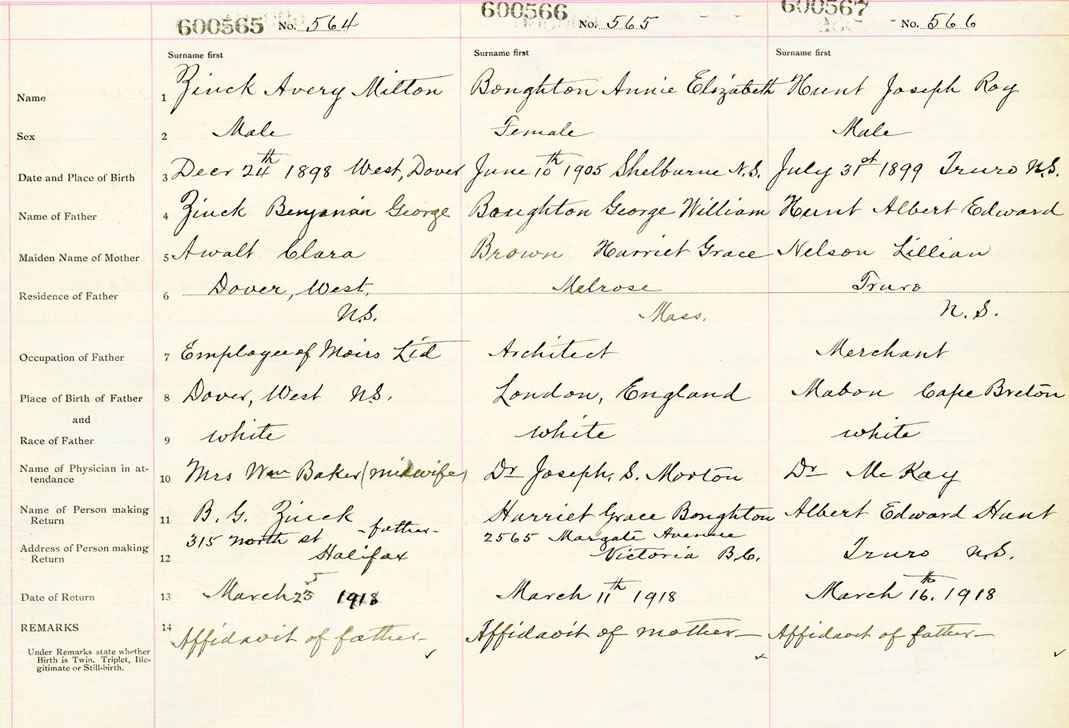 600565 No. 564
600566 No. 565
600567 No. 566
Surname first
Surname first
Surname first
Name 1 Zinck Avery Milton
Boughton Annie Elizabeth
Hunt Joseph Roy
Sex 2 Male
Female
Male
Date and Place of Birth 3 Decr 24th 1898 West, Dover
June 10th 1905 Shelburne N.S.
July 31st 1899 Truro N.S.
Name of Father 4 Zinck Benjamin George
Boughton George William
Hunt Albert Edward
Maiden Name of Mother 5 Awalt Clara
Brown Harriet Grace
Nelson Lillian
Residence of Father 6 Dover, West,
N.S.
Melrose
Mass.
Truro
N.S.
Occupation of Father 7 Employee of Moirs Ltd
Architect
Merchant
Place of Birth of Father 8 Dover, West N.S.
London, England
Mabou Cape Breton
and
Race of Father 9 white
white
white
Name of Physician in at-
tendance 10 Mrs Wm Baker (midwife)
Dr Joseph, S. Morton
Dr McKay
Name of Person making
Return 11 B. G. Zinck
-father-
Harriet Grace Boughton
Albert Edward Hunt
Address of Person making
Return 12 315 North st
Halifax
2565 Margate Avenue
Victoria B.C.
Truro N.S.
Date of Return 13 March 25 1918
March 11th 1918
March 16th. 1918
REMARKS 14 Affidavit of father-
Affidavit of mother-
Affidavit of father-
Under Remarks state whether
Birth is Twin, Triplet, Ille-
gitimate or Still-birth.